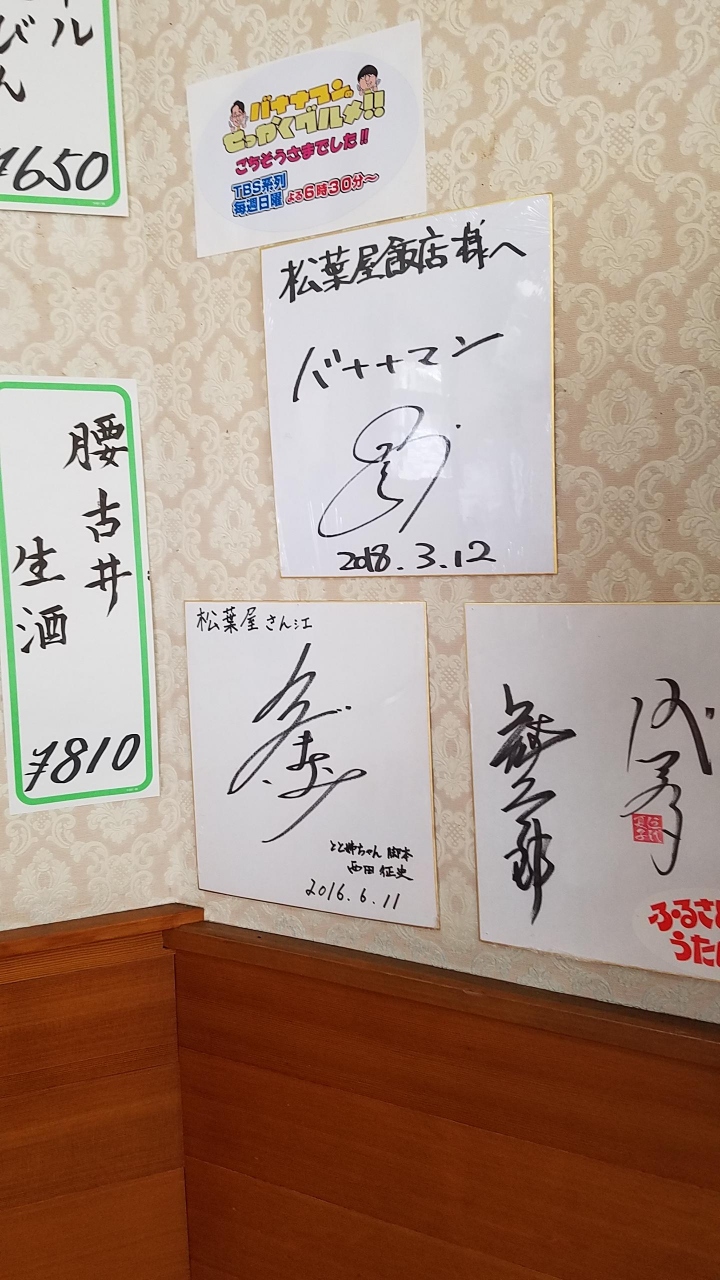 ル
びん
¥650
バナナマンの
せっかくグルメ!!
ごちそうさまでした!!
TBS系列
毎週日曜 よる6時30分~
松葉屋飯店様へ
バナナマン
2018.3.12
腰古井
生酒
¥810
松葉屋さん江
とと姉ちゃん 脚本
西田 征史
2016.6.11
ふるさと
うた